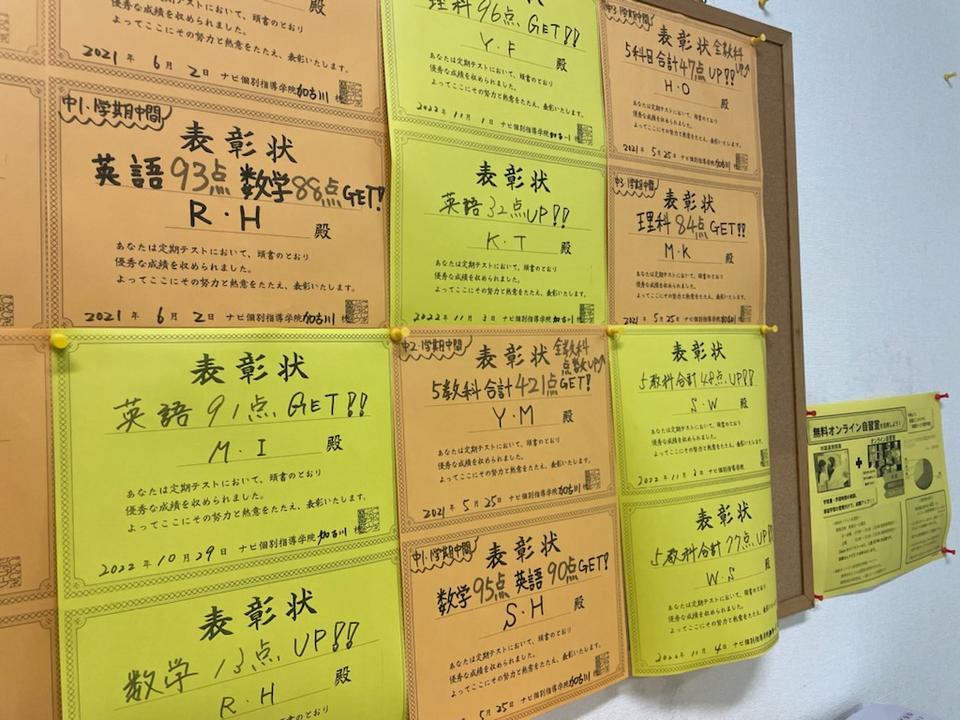 殿
収められました。
よってここにその努力と熱意をたたえ、表彰いたします。
2021年 6月 2日 ナビ個別指導学院加古川
中1.1学期中間
表彰状
英語93点 数学88点GET!
R・H 殿
あなたは定期テストにおいて、頭書のとおり
優秀な成績を収められました。
よってここにその努力と熱意をたたえ、表彰いたします。
2021年 6月 2日 ナビ個別指導学院加古川
表彰状
英語 91点 GET!!
M・I 殿
あなたは定期テストにおいて、頭書のとおり
優秀な成績を収められました。
よってここにその努力と熱意をたたえ、表彰いたします。
2022年 10月 29日 ナビ個別指導学院加古川
表彰状
数学 13点 UP!!
R・H 殿
あなたは定期テストにおいて、頭書のとおり
理科96点 GET!!
Y・F 殿
あなたは定期テストにおいて、頭書のとおり
優秀な成績を収められました。
よってここにその努力と熱意をたたえ、表彰いたします。
2022年 11月 1日 ナビ個別指導学院
表彰状
英語32点UP!!
K・T 殿
あなたは定期テストにおいて、頭書のとおり
優秀な成績を収められました。
よってここにその努力と熱意をたたえ、表彰いたします。
2022年 11月 2日 ナビ個別指導学院加古川
中2.1学期中間
表彰状 全教科点数UP
5教科合計421点GET!
Y・M 殿
あなたは定期テストにおいて、頭書のとおり
優秀な成績を収められました。
よってここにその努力と熱意をたたえ、表彰いたします。
2021年 5月 25日 ナビ個別指導学院加古川
中1.1学期中間
表彰状
数学95点 英語90点GET!
S・H 殿
あなたは定期テストにおいて、頭書のとおり
優秀な成績を収められました。
よってここにその努力と熱意をたたえ、表彰いたします。
5月 25日 ナビ個別指導学院加古川
中3.1学期中間
表彰状 全教科UP
5科目合計47点UP!!
H・O 殿
あなたは定期テストにおいて、頭書のとおり
優秀な成績を収められました。
よってここにその努力と熱意をたたえ、表彰いたします。
2021年 5月25日 ナビ個別指導学院加古川
中3.1学期中間
表彰状
理科84点GET!!
M・K 殿
あなたは定期テストにおいて、頭書のとおり
優秀な成績を収められました。
よってここにその努力と熱意をたたえ、表彰いたします。
2021年 5月25日 ナビ個別指導学院加古川
表彰状
5教科合計48点UP!!
S・W 殿
あなたは定期テストにおいて、頭書のとおり
優秀な成績を収められました。
よってここにその努力と熱意をたたえ、表彰いたします。
2022年 11月 2日 ナビ個別指導学院
表彰状
5教科合計77点UP!!
W・S 殿
あなたは定期テストにおいて、頭書のとおり
優秀な成績を収められました。
よってここにその努力と熱意をたたえ、表彰いたします。
2022年 11月 4日 ナビ個別指導学院
無料オンライン自習室
オンライン自習室